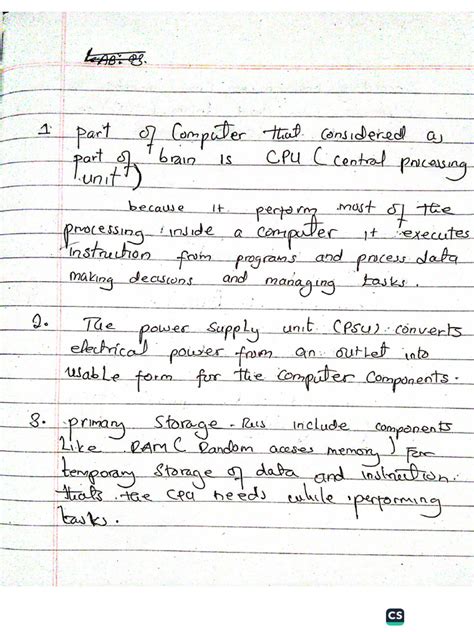 LAB: 03.
1 part of Computer that considered as
part of brain is CPU ( central processing
unit )
because it perform most of the
processing inside a computer it executes
instruction from programs and process data
making decisions and managing tasks.
2. The power supply unit (PSU) converts
electrical power from an outlet into
usable form for the computer components.
3. primary storage - include components
Like RAM ( Random access memory ) For
temporary storage of data and instruction.
thats the CPU needs while performing
tasks.
CS